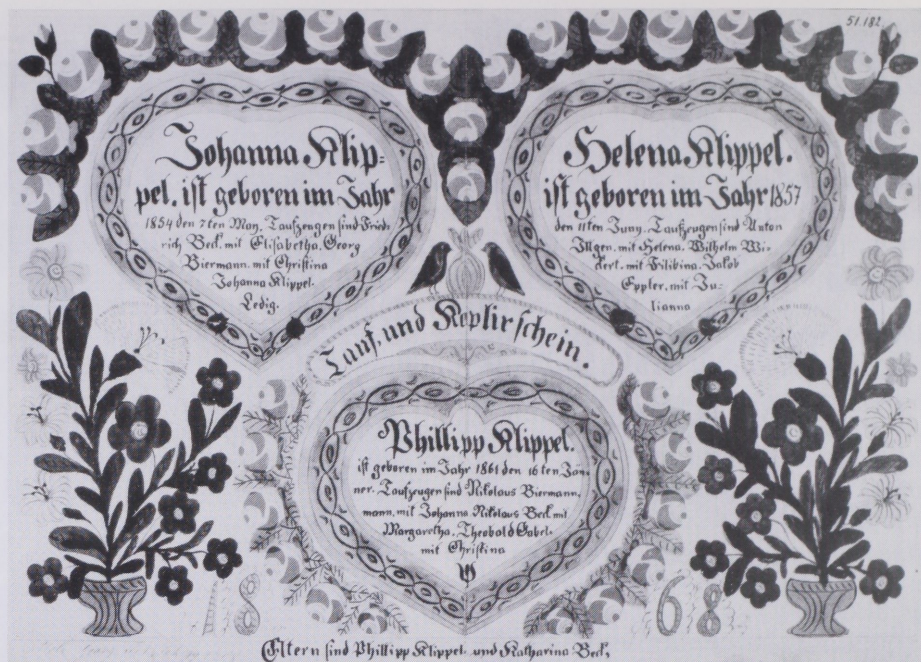 51.182
Johanna Klip=
pel. ist geboren im Jahr
1854 den 7ten May. Taufzeugen sind Fried=
rich Beck. mit Elisabetha. Georg
Biermann. mit Christina
Johanna Klippel.
Ledig.
Helena Klippel.
ist geboren im Jahr 1857
den 11ten Juny. Taufzeugen sind Anton
Illgen. mit Helena. Wilhelm Wi=
ckert. mit Filibina. Jakob
Eppler. mit Ju=
lianna
Tauf. und Koplirschein.
Phillipp Klippel.
ist geboren im Jahr 1861 den 16ten Jan=
ner. Taufzeugen sind Nikolaus Biermann,
mann, mit Johanna Nikolaus Beck mit
Margaretha. Theobald Gabel.
mit Christina
18 68
Eltern sind Phillipp Klippel und Katharina Beck,